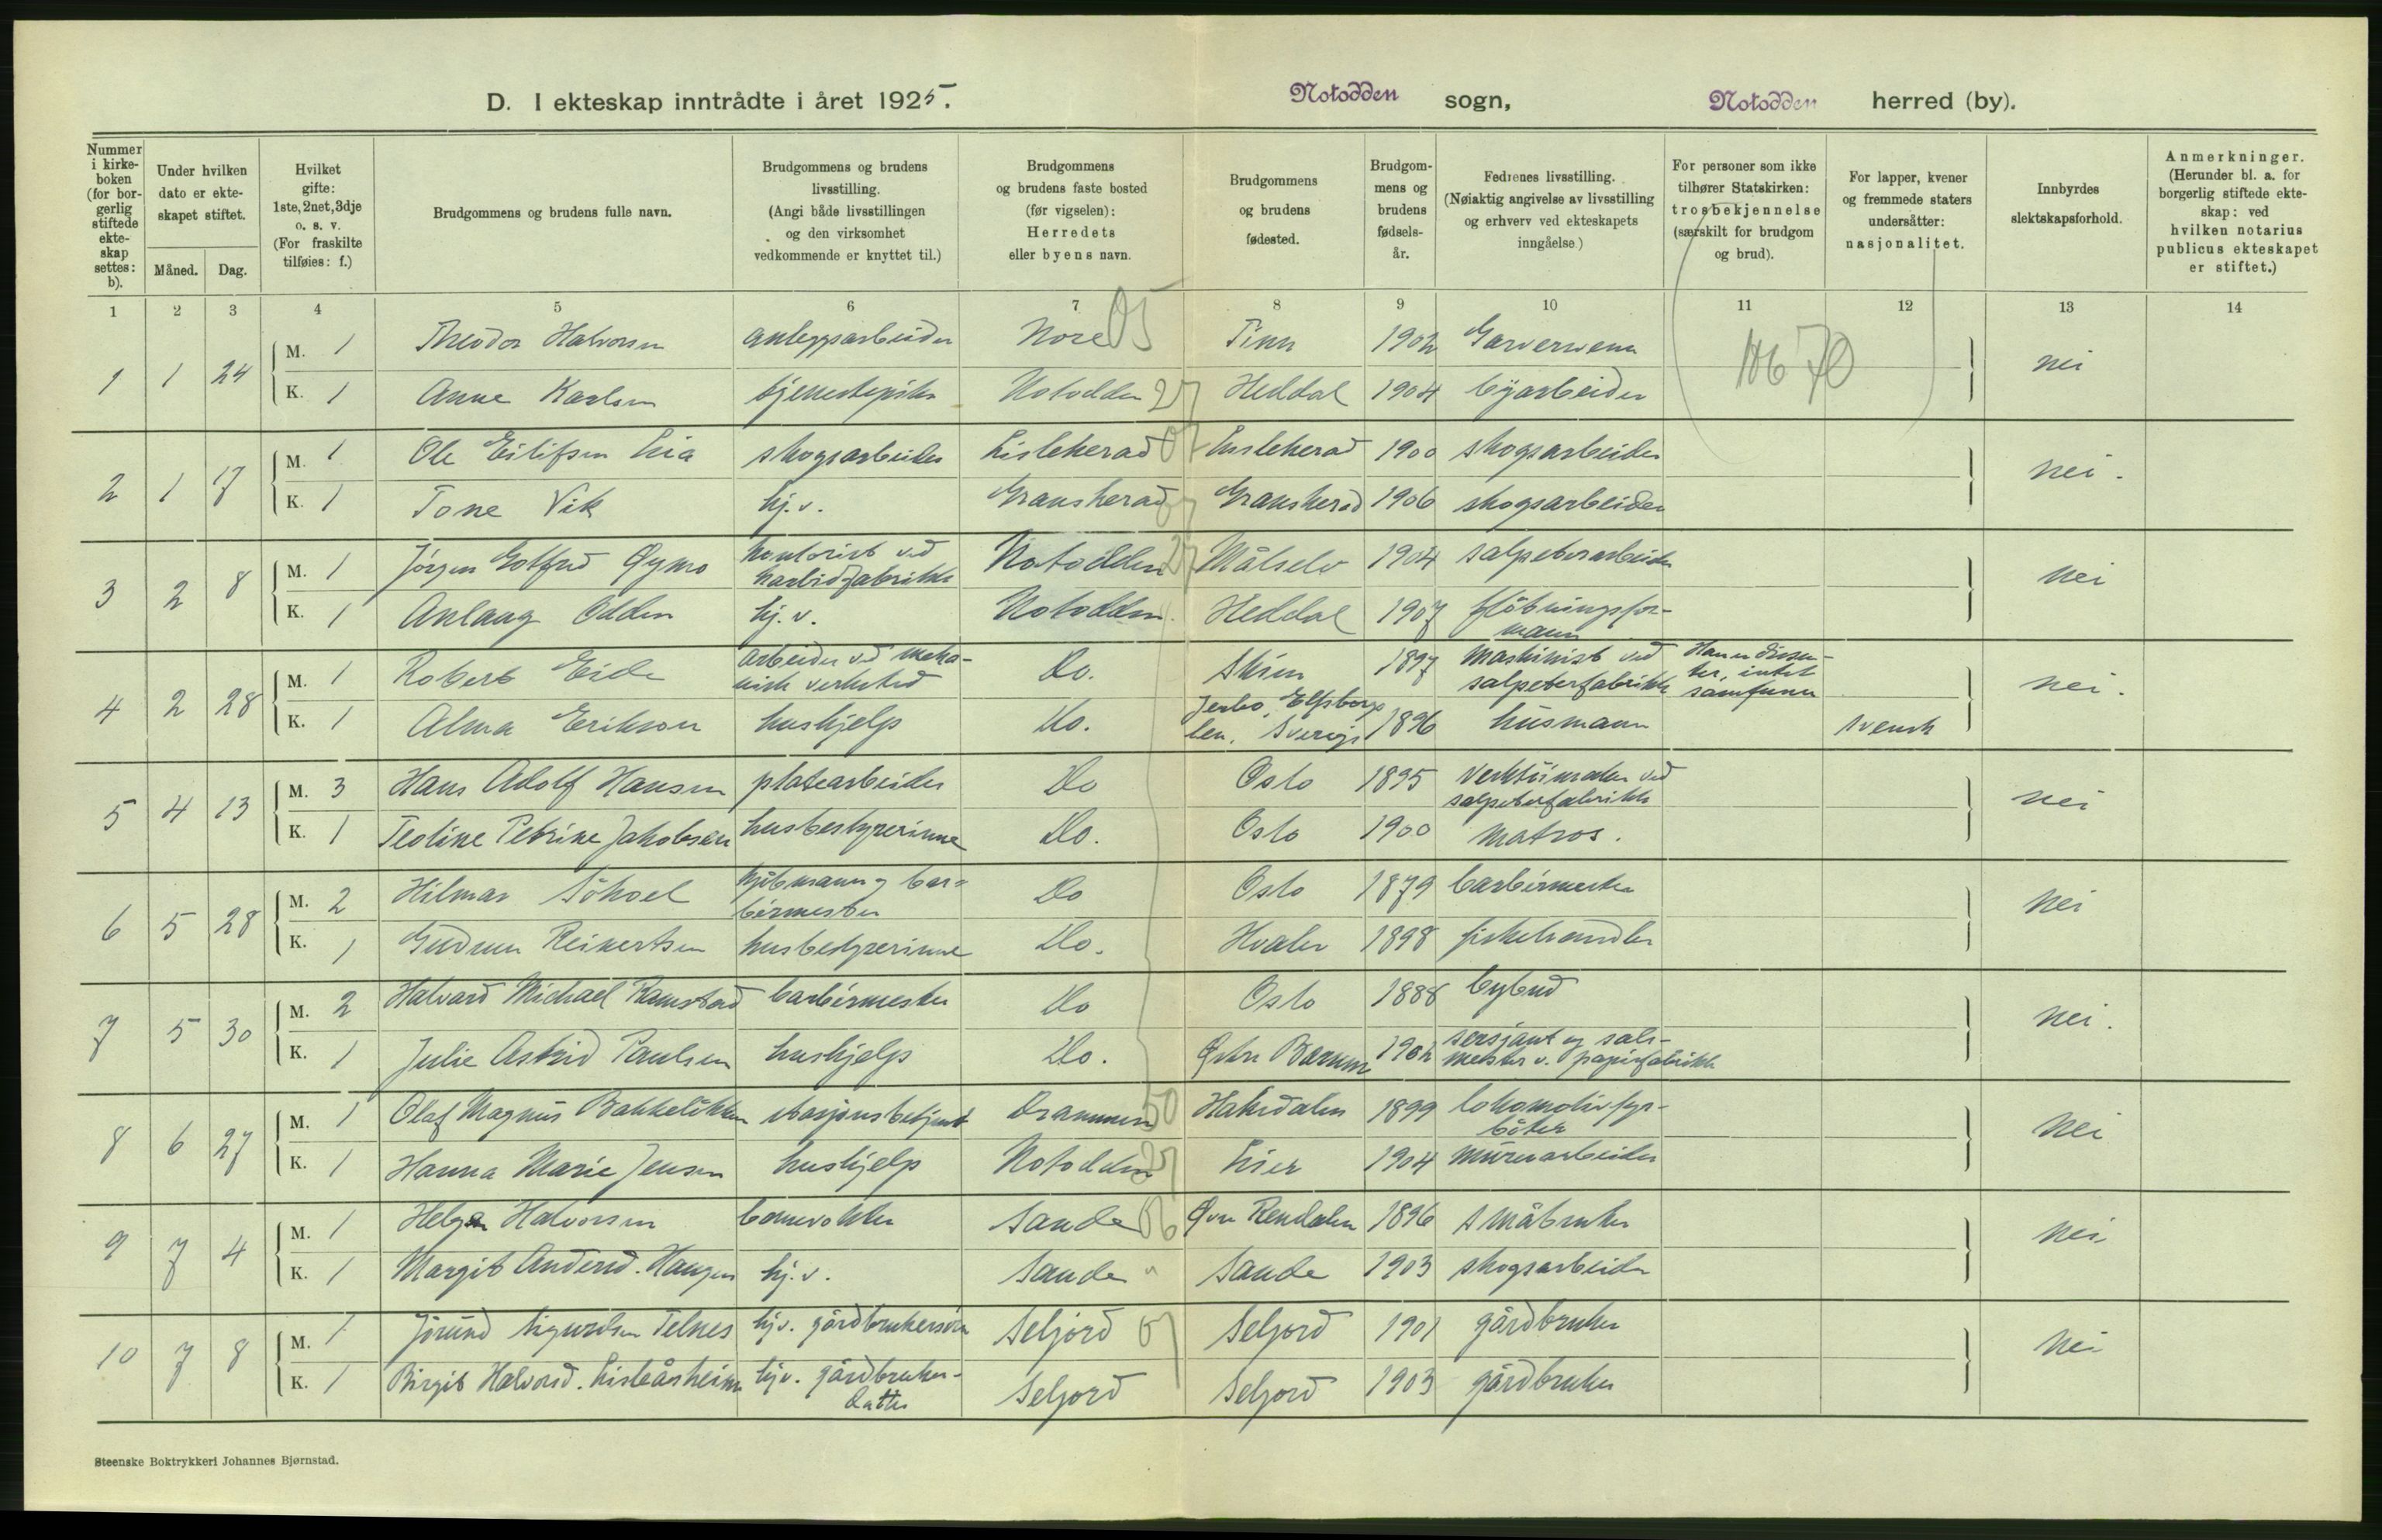 D. I ekteskap inntrådte i året 1925. Notodden sogn, Notodden herred (by).
Nummer i kirkeboken (for borgerlig stiftede ekteskap settes: b).
Under hvilken dato er ekteskapet stiftet.
Måned. Dag.
Hvilket gifte: 1ste, 2net, 3dje o. s. v. (For fraskilte tilføies: f.)
Brudgommens og brudens fulle navn.
Brudgommens og brudens livsstilling. (Angi både livsstillingen og den virksomhet vedkommende er knyttet til.)
Brudgommens og brudens faste bosted (før vigselen): Herredets eller byens navn.
Brudgommens og brudens fødested.
Brudgommens og brudens fødselsår.
Fedrenes livsstilling. (Nøiaktig angivelse av livsstilling og erhverv ved ekteskapets inngåelse.)
For personer som ikke tilhører Statskirken: trosbekjennelse (særskilt for brudgom og brud).
For lapper, kvener og fremmede staters undersåtter: nasjonalitet.
Innbyrdes slektskapsforhold.
Anmerkninger. (Herunder bl. a. for borgerlig stiftede ekteskap: ved hvilken notarius publicus ekteskapet er stiftet.)
1 2 3 4 5 6 7 8 9 10 11 12 13 14
1 1 24 M. 1 Theodor Halvorsen anleggsarbeider Nore 05 Tinn 1902 Garversvenn nei
K. 1 Anne Karlsen tjenestepike Notodden 27 Heddal 1904 byarbeider
2 1 17 M. 1 Ole Eilifsen Lia skogsarbeider Lisleherad 07 Lisleherad 1900 skogsarbeider nei.
K. 1 Tone Vik hj.v. Gransherad Gransherad 1906 skogsarbeider
3 2 8 M. 1 Jörgen Gotfred Øymo kontorist ved karbidfabrikk Notodden 27 Målselv 1904 salpeterarbeider nei
K. 1 Anlaug Odden hj.v. Notodden Heddal 1907 flötningsformann
4 2 28 M. 1 Robert Eide arbeider ved mekanisk verksted Do. Skien 1897 maskinist ved salpeterfabrikk Han er dissenter, intet samfunn nei.
K. 1 Alma Erikson hushjelp Do. Jerbo, Elfsborgs len, Sverige 1896 husmann svensk
5 4 13 M. 3 Hans Adolf Hansen platearbeider Do Oslo 1895 ved salpeterfabrikk nei
K. 1 Teoline Petrine Jakobsen husbestyrerinne Do. Oslo 1900 matros.
6 5 28 M. 2 Hilmar kjöbmann og barbérmester Do Oslo 1879 barbérmester nei
K. 1 Gudrun Reinertsen husbestyrerinne Do. Hvaler 1898 fiskehandler
7 5 30 M. 2 Halvard Michael Ramstad barbérmester Do Oslo 1888 bybud nei.
K. 1 Julie Astrid Paulsen hushjelp Do. Østre Bærum 1902 sersjant og salmester v. papirfabrikk
8 6 27 M. 1 Olaf Magnus Bakkelökken stasjonsbetjent Drammen 50 Hakadalen 1899 lokomotivfyrböter nei
K. 1 Hanna Marie Jensen hushjelp Notodden 27 Lier 1904 murerarbeider
9 7 4 M. 1 Helge Halvorsen bomvokter Sande 06 Øvre Rendalen 1896 småbruker nei
K. 1 Margit Andersd. Haugen hj.v. Sande " Sande 1903 skogsarbeider
10 7 8 M. 1 Jörund Sigurdsen Telnes hjv. gårdbrukersön Seljord 07 Seljord 1901 gårdbruker nei
K. 1 Birgit Halvorsd. Lisleåsheim hjv. gårdbrukerdatter Seljord Seljord 1903 gårdbruker
Steenske Boktrykkeri Johannes Bjørnstad.